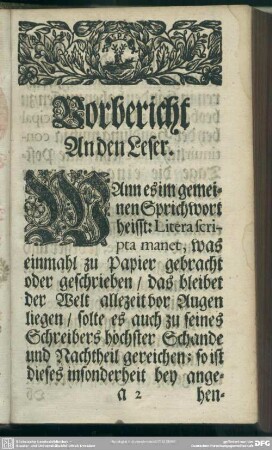 Vorbericht
An den Leser.
WAnn es im gemei-
nen Sprichwort
heisst: Litera scri-
pta manet, was
einmahl zu Papier gebracht
oder geschrieben / das bleibet
der Welt allezeit vor Augen
liegen / solte es auch zu seines
Schreibers höchster Schande
und Nachtheil gereichen; so ist
dieses insonderheit bey ange-
a 2 hen-